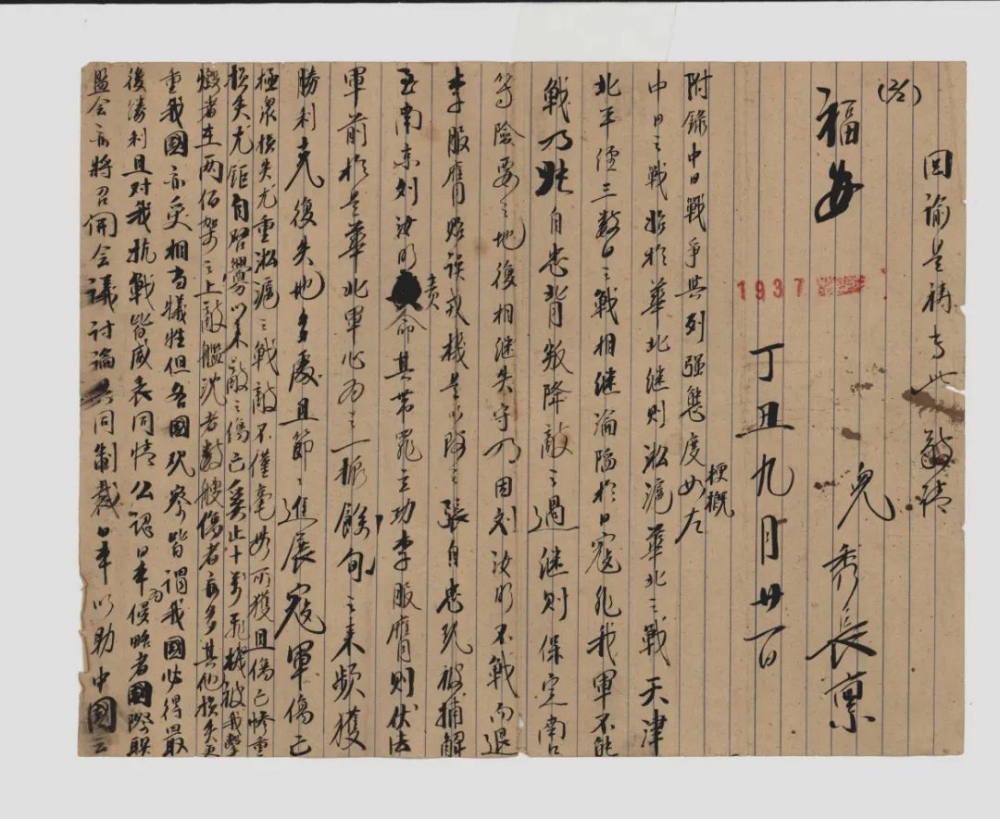 (六)
因諭是禱專此敬請
福安
兒 秀長 稟
1937
丁丑九月廿一日
附錄中日戰爭與列強態度梗概如左
中日之戰始於華北繼則淞滬華北之戰天津
北平僅三數日之戰相繼淪陷於日寇非我軍不能
戰乃張自忠背叛降敵之過繼則保定南口
等險要之地復相繼失守乃因刘汝明不戰而退
李服膺貽誤戎機是以致之張自忠現被捕解
至南京刘汝明責命其带罪立功李服膺則伏法
軍前於是華北軍心為之一振餘旬之来頻獲
勝利克復失地多處且節節進展寇軍傷亡
極眾損失尤重淞滬之戰敵不僅毫無所獲且傷亡慘重
損失尤鉅自啓釁以來敵之傷亡奚止十萬飛機被我擊
燬者在两佰架之上敵艦沈者數艘傷者亦多其他損失更
重我國亦受相當犧牲但各國觀察皆謂我國必得最
後勝利且對我抗戰皆威表同情公認日本為侵略者國際联
盟会亦將召開会議討論共同制裁日本以助中國云